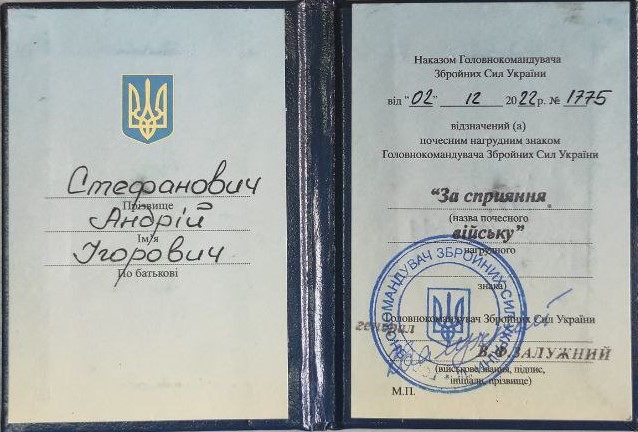 Стефанович
Прізвище
Андрій
Ім'я
Ігорович
По батькові
Наказом Головнокомандувача
Збройних Сил України
від "02" 12 2022 р. № 1775
відзначений (а)
почесним нагрудним знаком
Головнокомандувача Збройних Сил України
"За сприяння
(назва почесного
війську"
нагрудного
знака)
Головнокомандувач Збройних Сил України
генерал
В.Ф.ЗАЛУЖНИЙ
(військове звання, підпис,
ініціали, прізвище)
М.П.
ГОЛОВНОКОМАНДУВАЧ ЗБРОЙНИХ СИЛ УКРАЇНИ